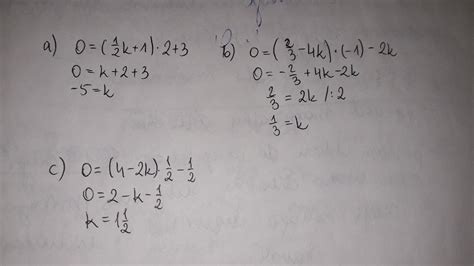 a) 0 = (1/2 k + 1) · 2 + 3
0 = k + 2 + 3
-5 = k
b) 0 = (2/3 - 4k) · (-1) - 2k
0 = -2/3 + 4k - 2k
2/3 = 2k /: 2
1/3 = k
c) 0 = (4 - 2k) · 1/2 - 1/2
0 = 2 - k - 1/2
k = 1 1/2